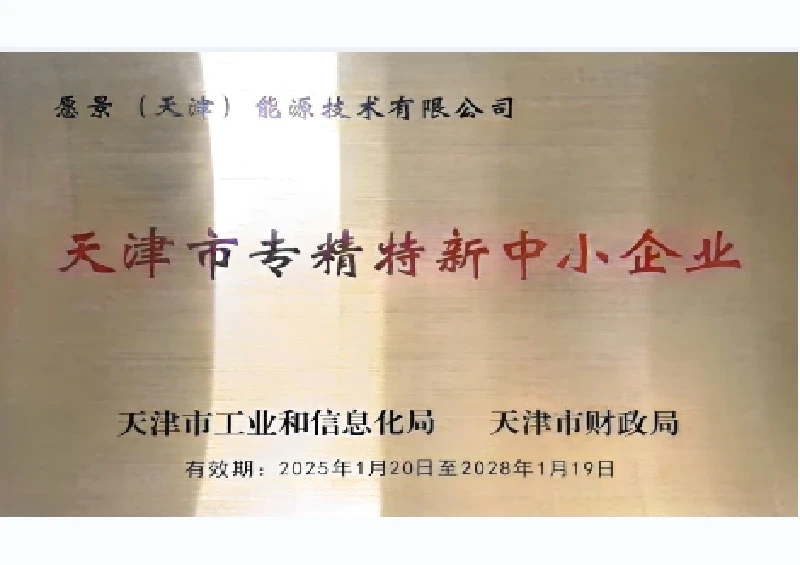 愿景（天津）能源技术有限公司
天津市专精特新中小企业
天津市工业和信息化局 天津市财政局
有效期：2025年1月20日至2028年1月19日